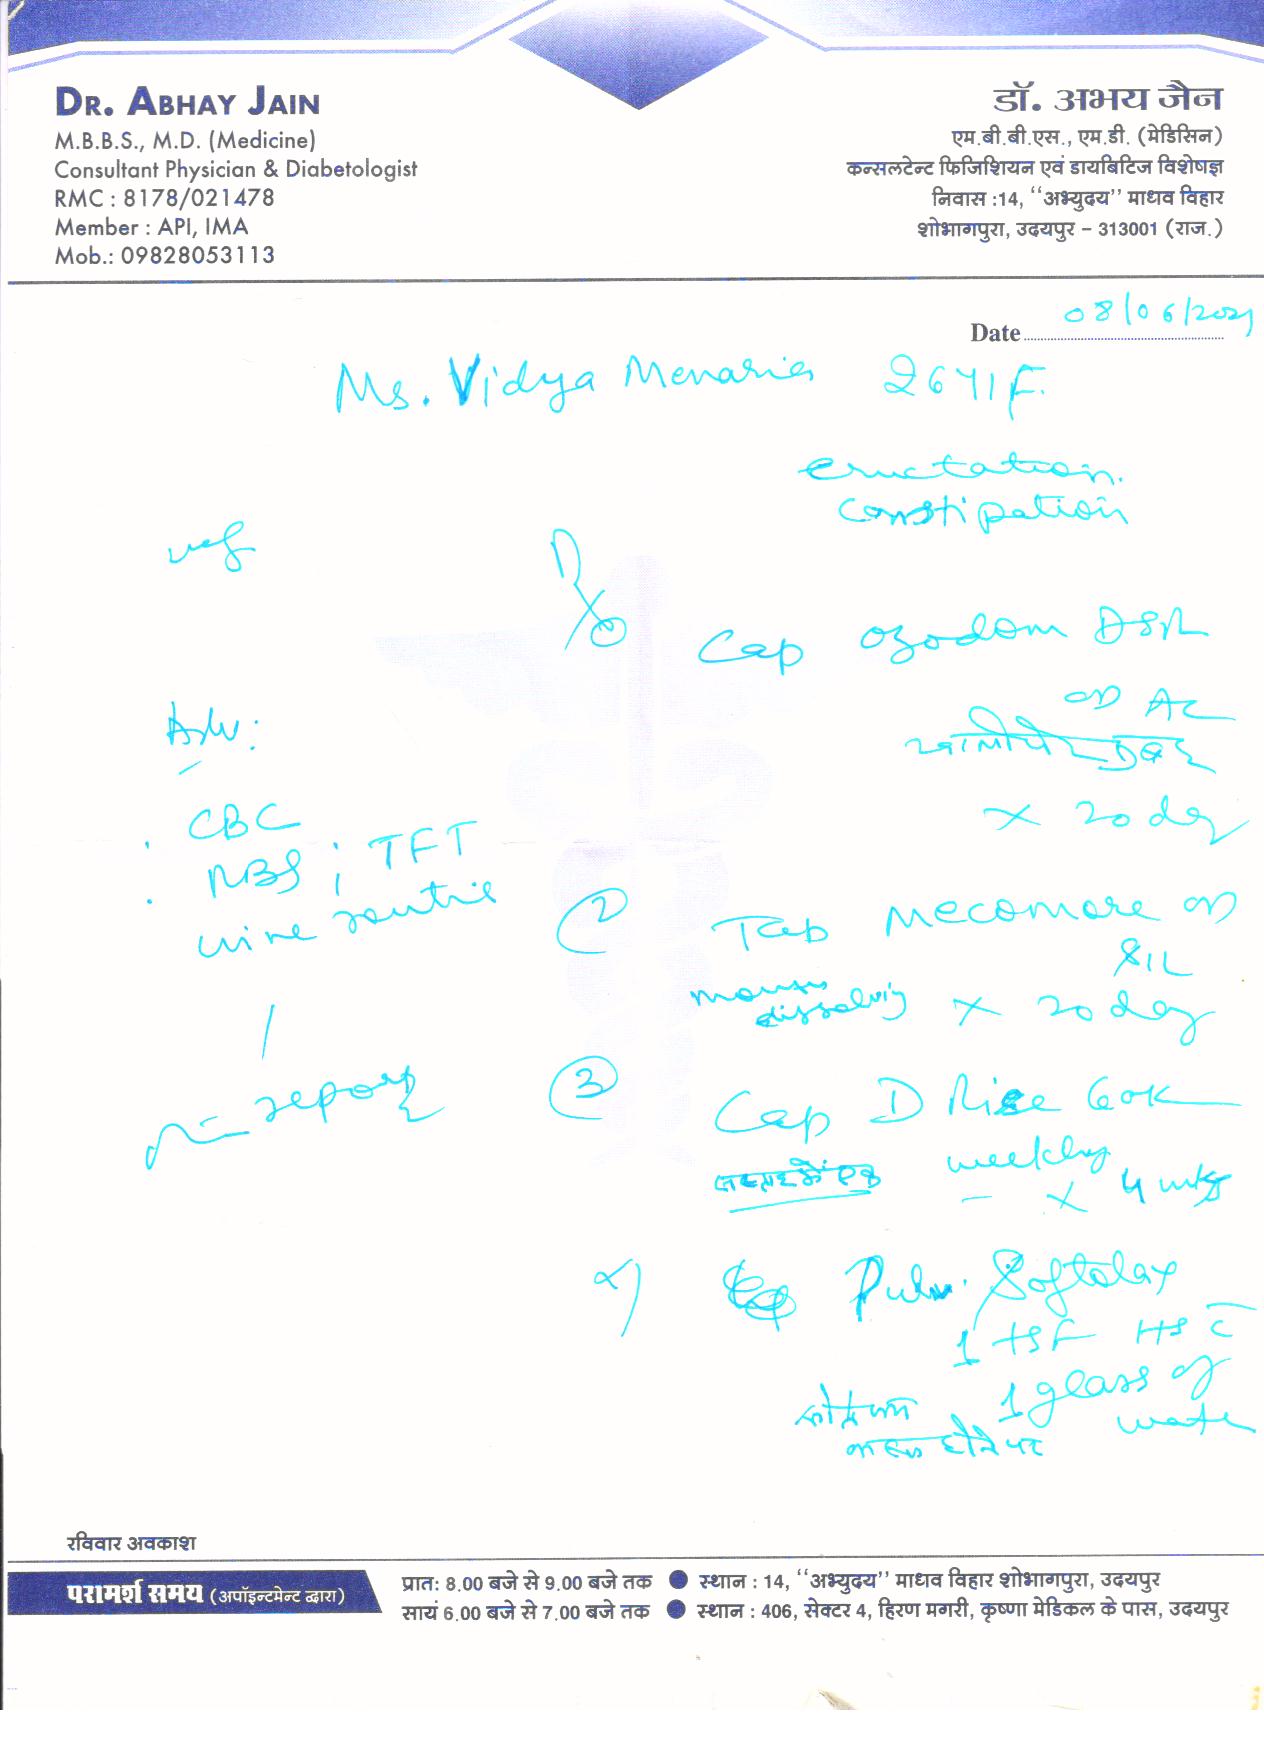 DR. ABHAY JAIN
M.B.B.S., M.D. (Medicine)
Consultant Physician & Diabetologist
RMC : 8178/021478
Member : API, IMA
Mob.: 09828053113
डॉ. अभय जैन
एम.बी.बी.एस., एम.डी. (मेडिसिन)
कन्सलटेन्ट फिजिशियन एवं डायबिटिज विशेषज्ञ
निवास :14, ‘‘अभ्युदय’’ माधव विहार
शोभागपुरा, उदयपुर – 313001 (राज.)
Date 08/06/2021
Ms. Vidya Menaria 26y/F.
eructation.
constipation
Cap Ozodom DSR
OD AC
x 20 day
Adv:
CBC
RBS ; TFT
urine routine
report
2
Tab Mecomore OD
S/L
mouth dissolving x 20 day
3
Cap D Rise 60K
weekly
सप्ताह में एक
x 4 wks
4)
Pulv. Softolax
1 TSF HS c̄
1 glass of
water
रविवार अवकाश
परामर्श समय (अपॉइन्टमेन्ट द्वारा)
प्रात: 8.00 बजे से 9.00 बजे तक ● स्थान : 14, ‘‘अभ्युदय’’ माधव विहार शोभागपुरा, उदयपुर
सायं 6.00 बजे से 7.00 बजे तक ● स्थान : 406, सेक्टर 4, हिरण मगरी, कृष्णा मेडिकल के पास, उदयपुर